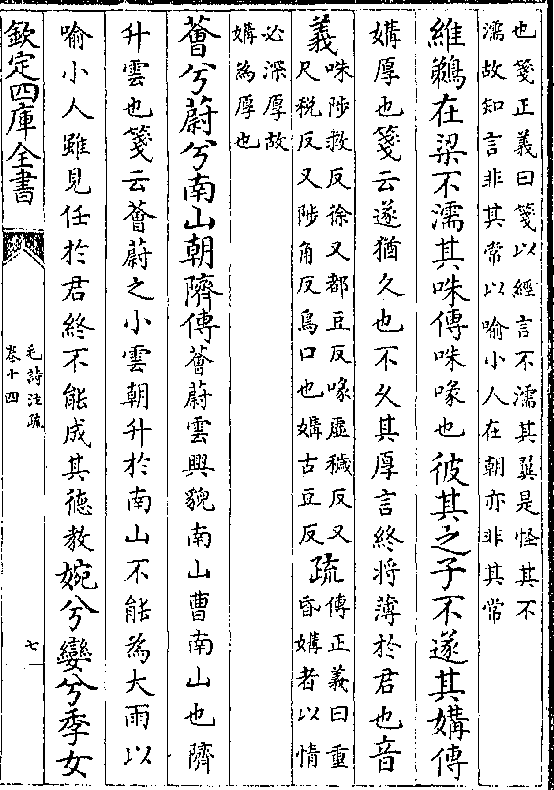 也箋正義曰箋以經言不濡其翼是怪其不
濡故知言非其常以喻小人在朝亦非其常
維鵜在梁不濡其咮傳咮喙也彼其之子不遂其媾傳
媾厚也箋云遂猶久也不久其厚言終將薄於君也音
義咮陟救反徐又都豆反喙虚穢反又
尺税反又陟角反鳥口也媾古豆反疏傳正義曰重
昏媾者以情
必深厚故
媾為厚也
薈兮蔚兮南山朝隮傳薈蔚雲興貌南山曹南山也隮
升雲也箋云薈蔚之小雲朝升於南山不能為大雨以
喻小人雖見任於君終不能成其德教婉兮孌兮季女
欽定四庫全書
毛詩注疏
卷十四
七